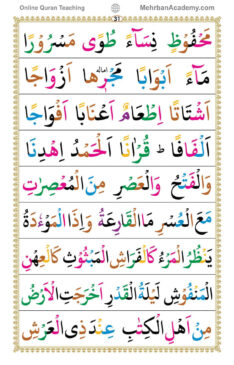 Online Quran Teaching MehrbanAcademy.com
31
مَحۡفُوۡظٍ نِسَآءً طُوًى مَسۡرُوۡرًا
مَآءً اَبۡوَابًا مَجۡرٖىهَا اَزۡوَاجًا
اَشۡتَاتًا اِطۡعَامٌ اَعۡنَابًا اَفۡوَاجًا
اَلۡفَافًا ط قُرۡاٰنًا اَلۡحَمۡدُ اِهۡدِنَا
وَالۡفَتۡحُ وَالۡعَصۡرِ مِنَ الۡمُعۡصِرٰتِ
مَعَ الۡعُسۡرِ مَاالۡقَارِعَةُ وَاِذَا الۡمَوۡءٗدَةُ
يَنۡظُرُ الۡمَرۡءُ كَالۡفَرَاشِ الۡمَبۡثُوۡثِ كَالۡعِهۡنِ
الۡمَنۡفُوۡشِ لَيۡلَةُ الۡقَدۡرِ اَخۡرَجَتِ الۡاَرۡضُ
مِنۡ اَهۡلِ الۡكِتٰبِ عِنۡدَ ذِى الۡعَرۡشِ